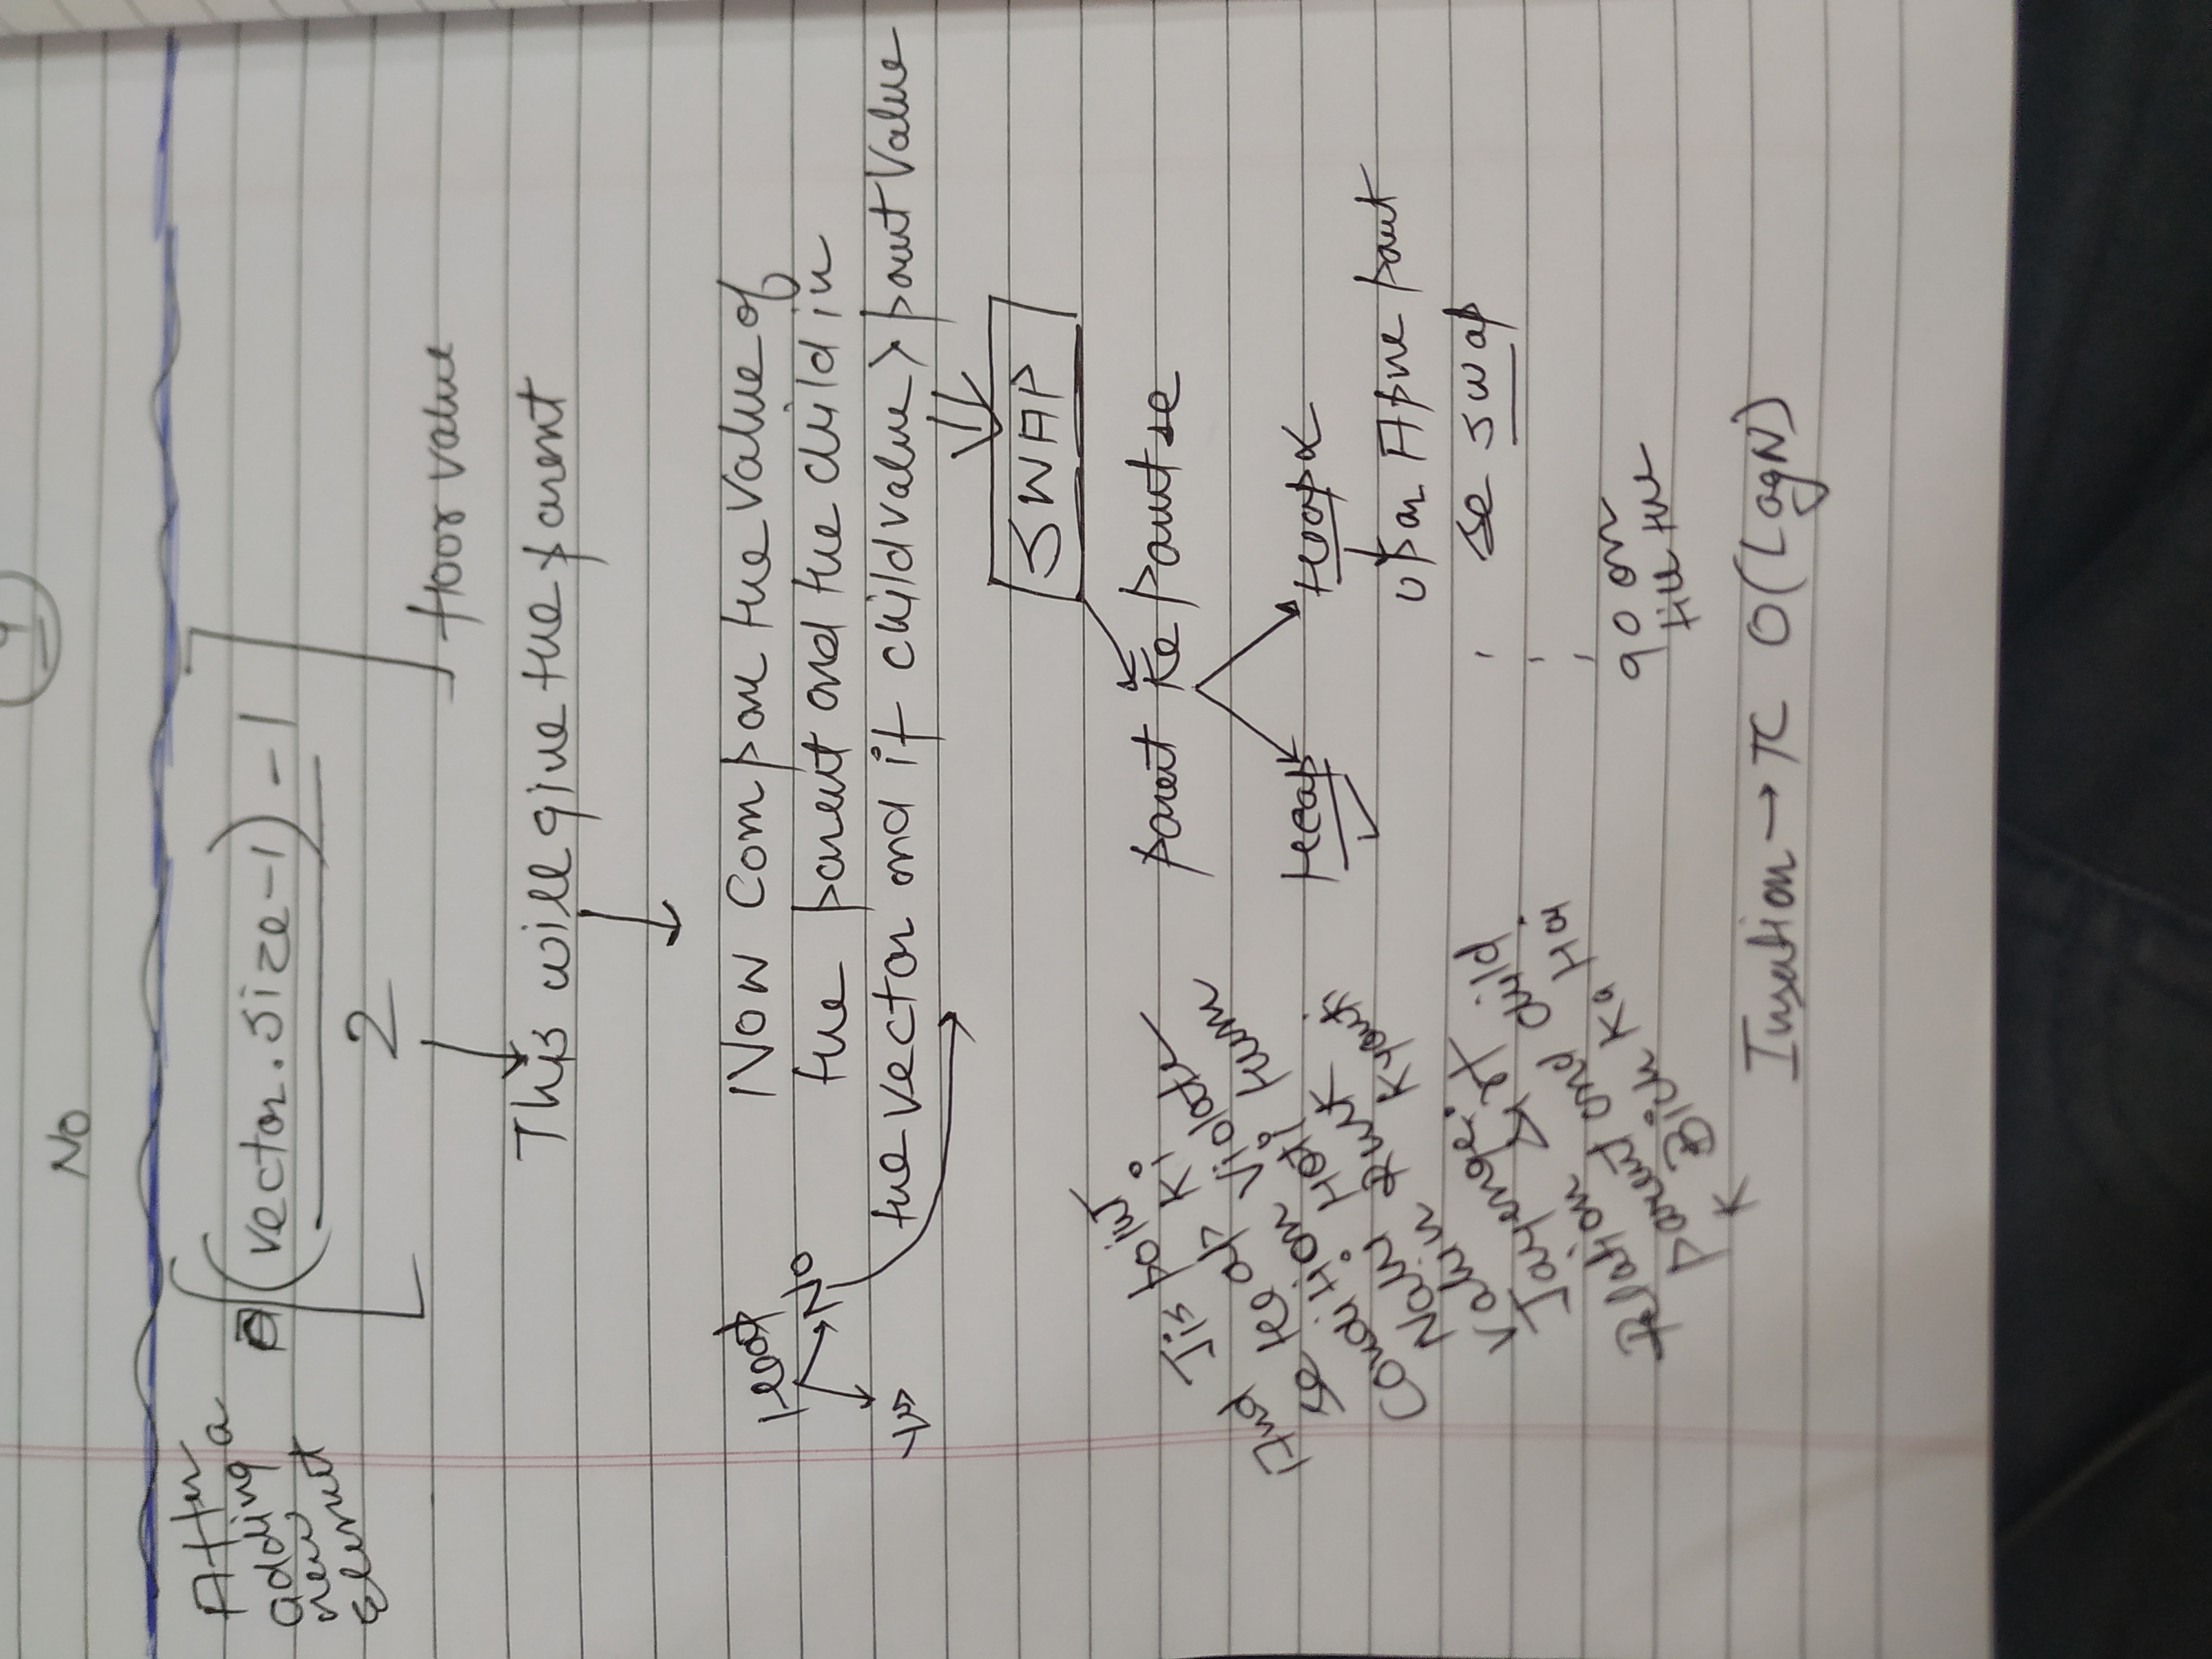 No
After
adding a
new
Element
(vector.size-1) -1
2
floor value
This will give the parent
Heap
No
Yes
Now Compare the Value of
the parent and the child in
the vector and if child value > parent Value
SWAP
parent Ke parent se
Heap ✓
Heap ×
Upar Apne parent
se swap
go on
till the
And Jis point
se Heap Ki
Condition Violate
Nahi Hoti Hum
Vahin Ruk
Jayenge. Kyonki
Relation Sirf
parent and child
K Bich Ka Hai
Insertion → TC O(LogN)